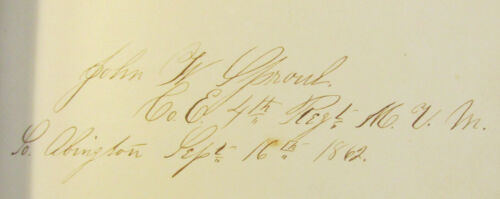 John W Sproul.
Co E. 4th Regt. M. V. M.
So. Abington Sept 16th 1862.